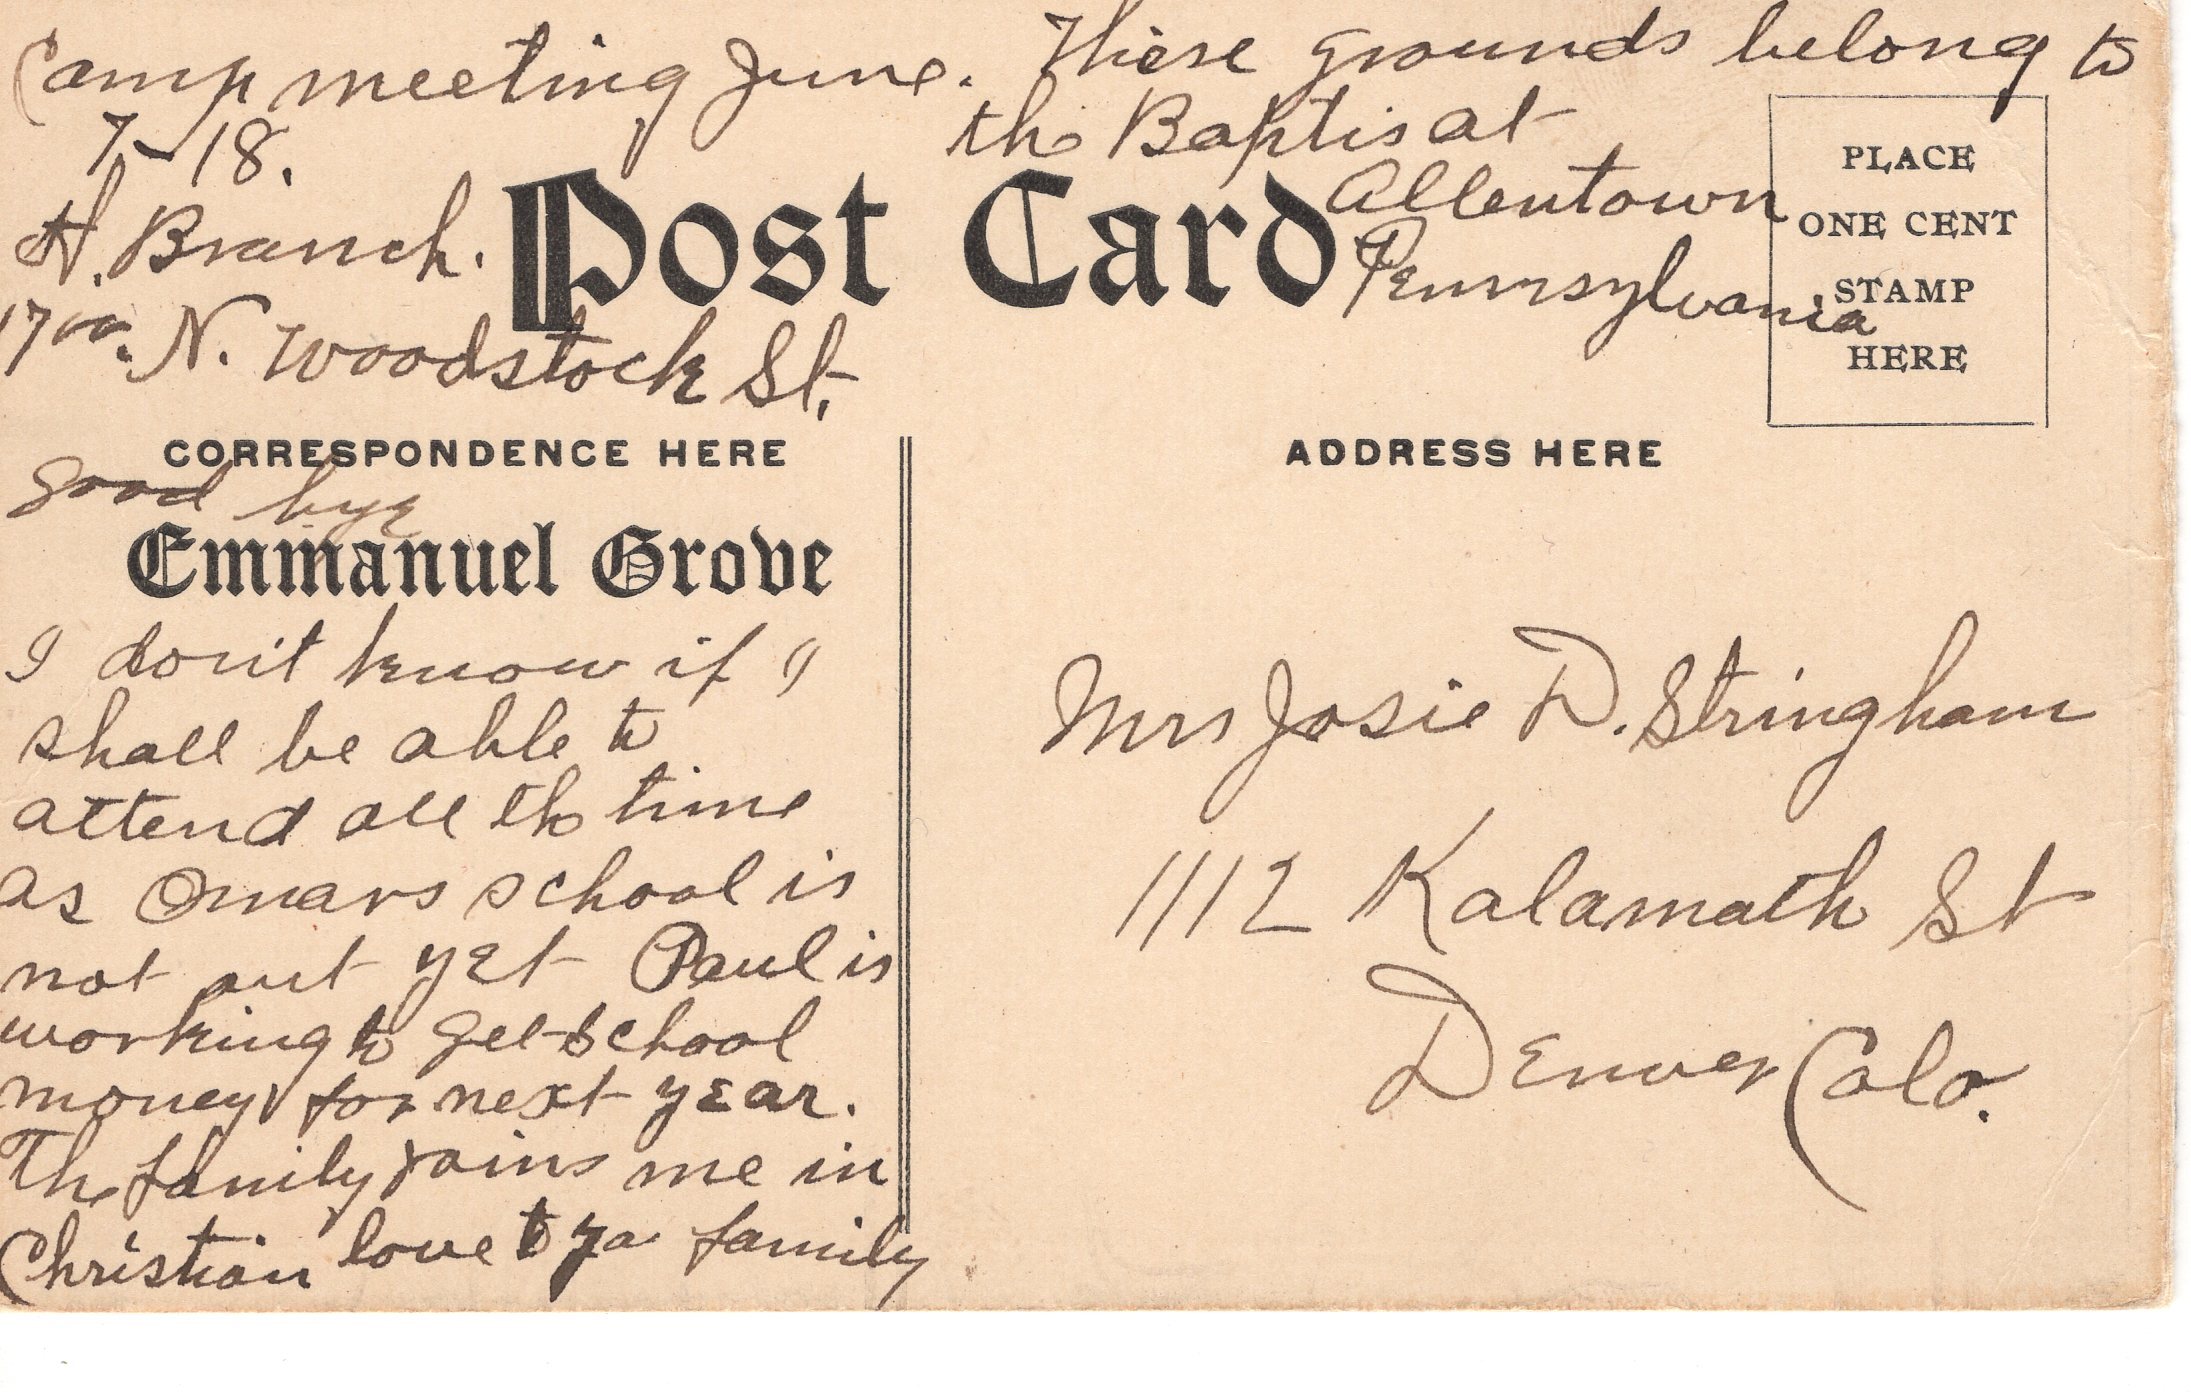 Camp meeting June. These grounds belong to
7-18. the Baptis at
Allentown
Pennsylvania
H. Branch.
N. Woodstock St.
Post Card
PLACE
ONE CENT
STAMP
HERE
CORRESPONDENCE HERE
Good bye
Emmanuel Grove
I don't know if I
shall be able to
attend all the time
as Omars school is
not out yet Paul is
working to get school
money for next year.
The family joins me in
Christian love to family
ADDRESS HERE
Mrs Josie D. Stringham
1112 Kalamath St
Denver Colo.